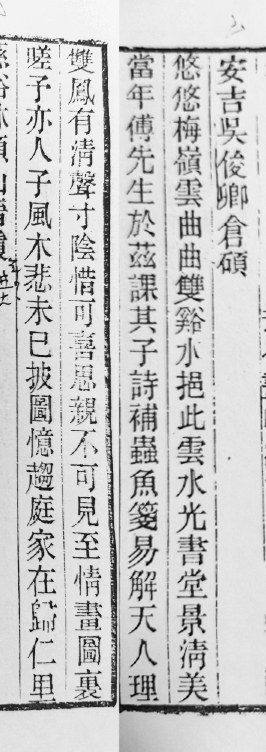 安吉吳俊卿倉碩
悠悠梅嶺雲曲曲雙谿水挹此雲水光書堂景清美
當年傅先生於茲課其子詩補蟲魚箋易解天人理
雙鳳有清聲寸陰惜可喜思親不可見至情畫圖裏
嗟予亦人子風木悲未已披圖憶趨庭家在歸仁里